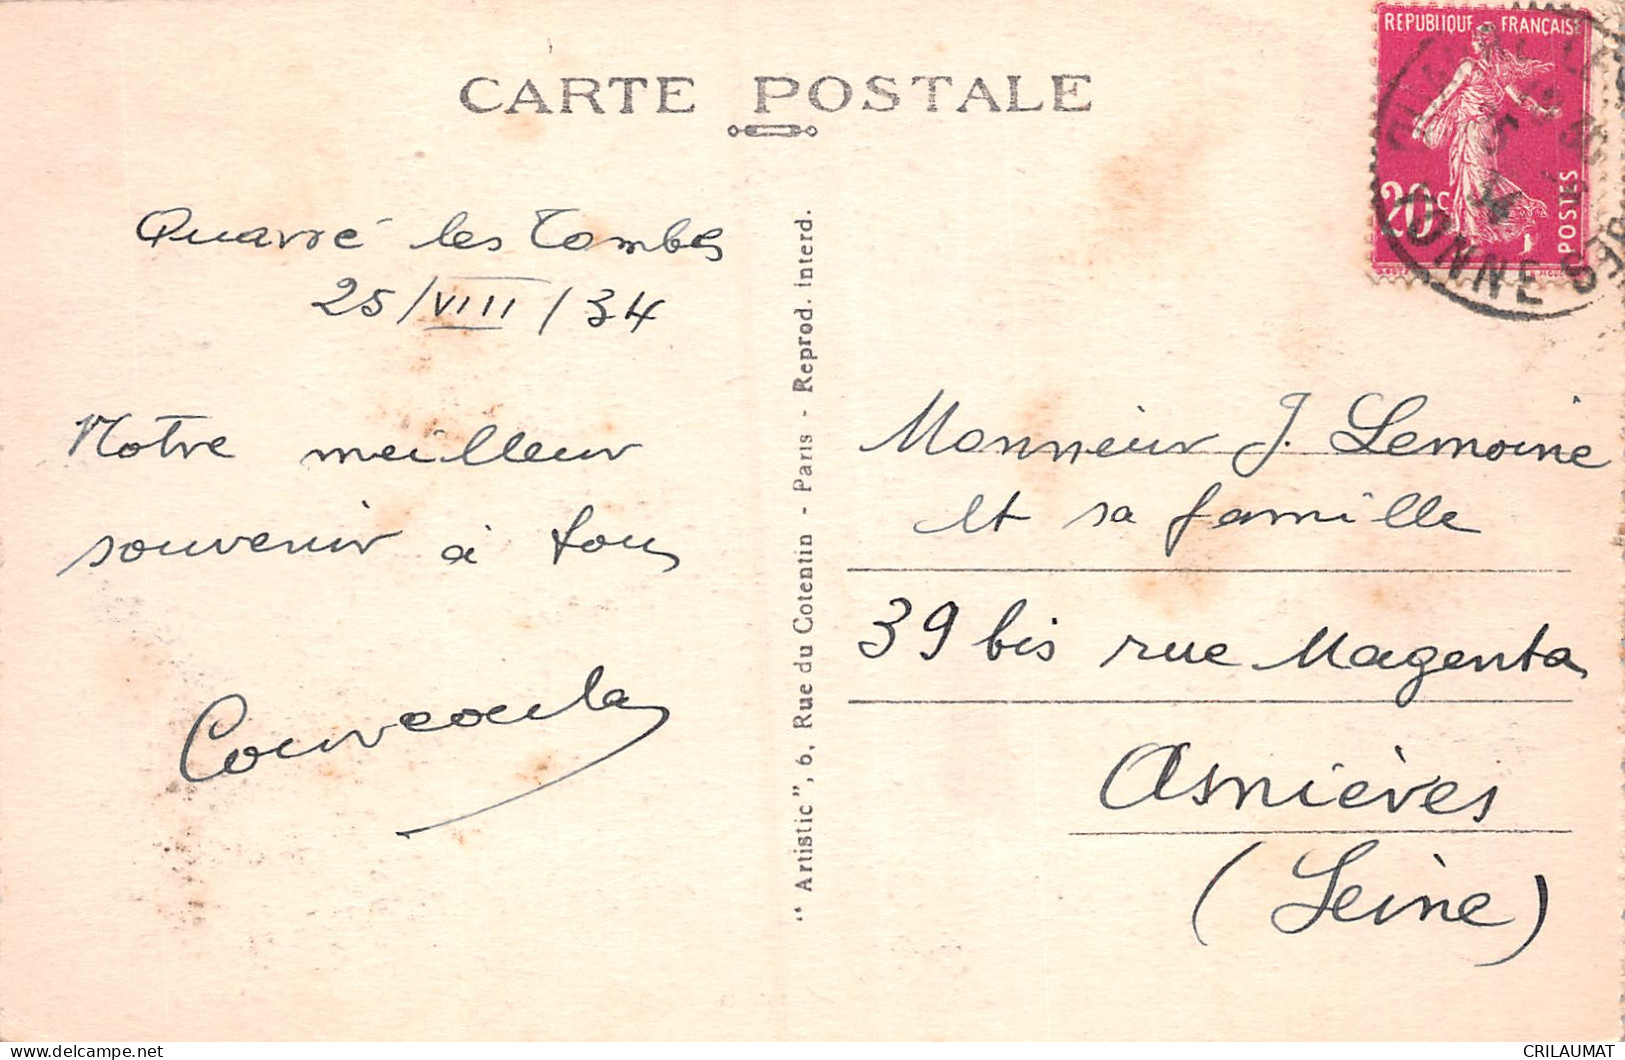 CARTE POSTALE
REPUBLIQUE FRANÇAISE
20c
POSTES
YONNE
Quarré les Tombes
25/VIII/34
Notre meilleur
souvenir à tous
"Artistic", 6, Rue du Cotentin - Paris - Reprod. interd.
Monsieur J. Lemoine
et sa famille
39 bis rue Magenta
Asnières
(Seine)
CRILAUMAT